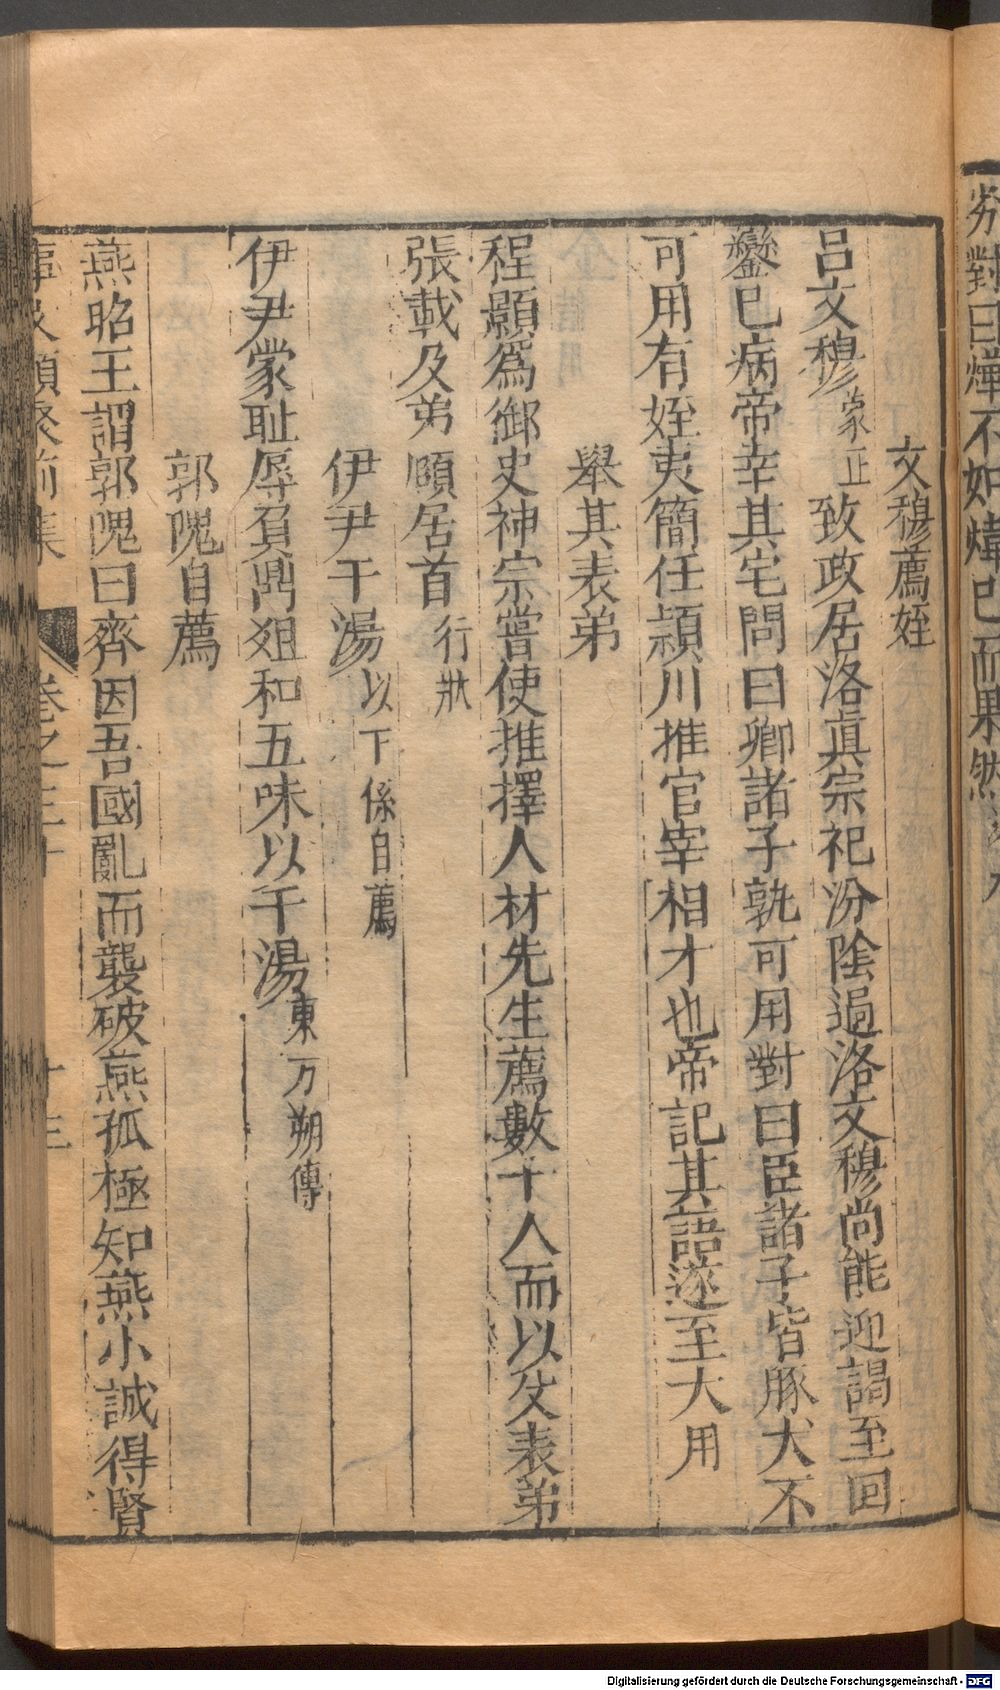 夯對曰燁不如煒已而果然
文穆薦姪
呂文穆蒙正致政居洛眞宗祀汾陰過洛文穆尚能迎謁至回
鑾已病帝幸其宅問曰卿諸子孰可用對曰臣諸子皆豚犬不
可用有姪夷簡任潁川推官宰相才也帝記其語遂至大用
舉其表弟
程顥爲御史神宗嘗使推擇人材先生薦數十人而以父表弟
張載及弟頤居首行狀
伊尹干湯以下係自薦
伊尹蒙耻辱負鼎俎和五味以干湯東方朔傳
郭隗自薦
燕昭王謂郭隗曰齊因吾國亂而襲破燕孤極知燕小誠得賢
事文類聚前集 卷之三十 十三
Digitalisierung gefördert durch die Deutsche Forschungsgemeinschaft - DFG